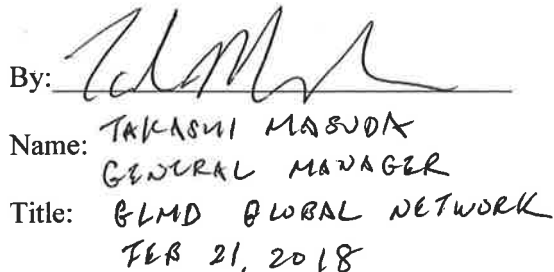 By:
Name: TAKASHI MASUDA
GENERAL MANAGER
Title: GLMD GLOBAL NETWORK
FEB 21, 2018